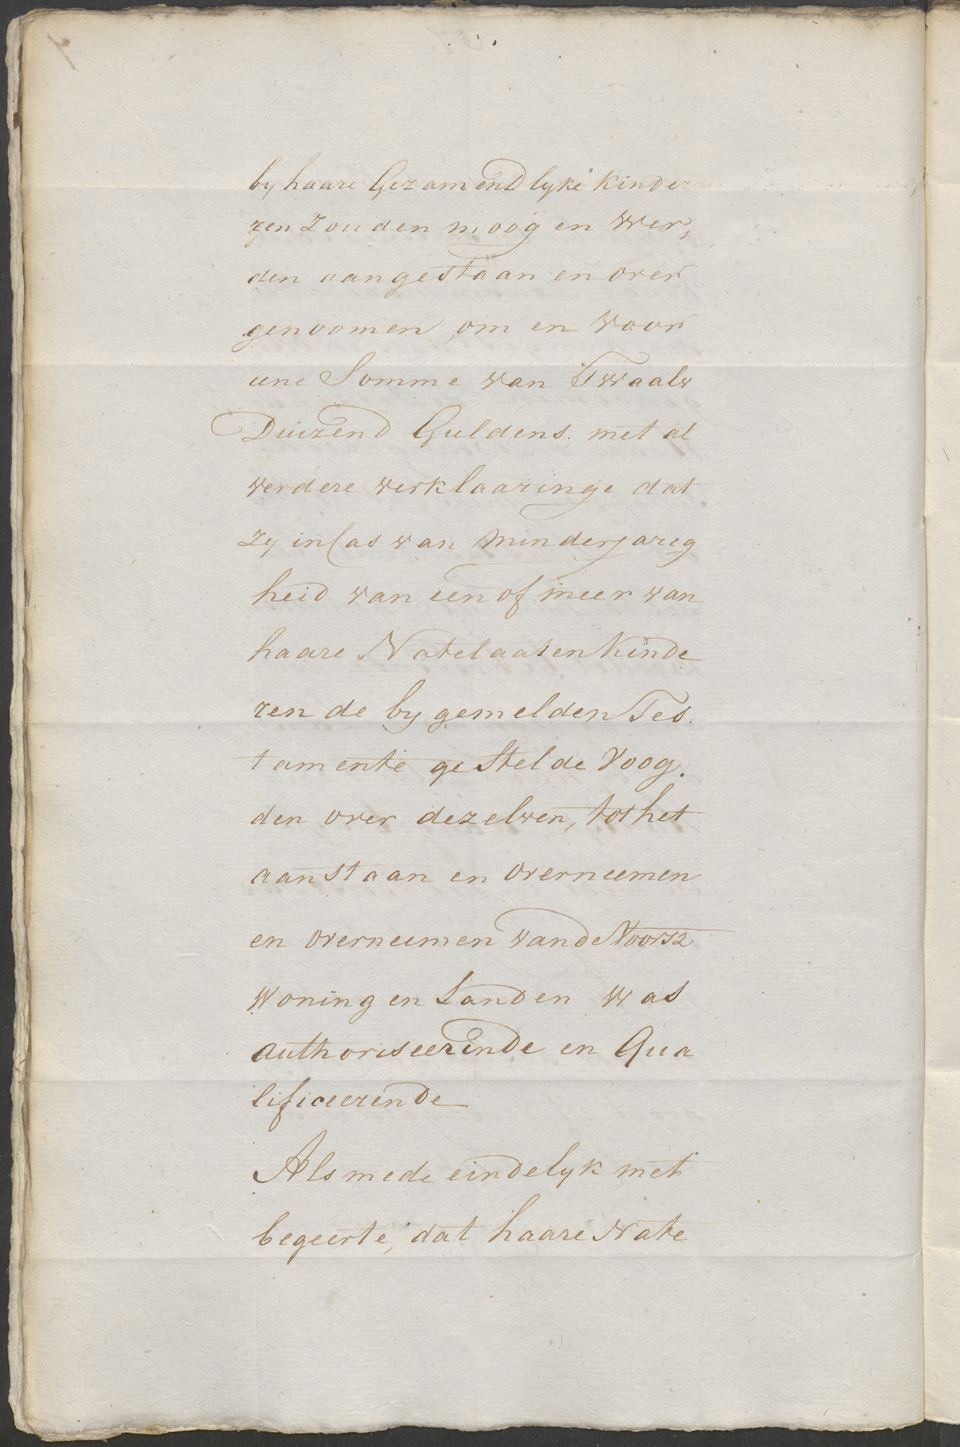 by haare Gezamendlyke kinde
ren zouden moogen wer,
den aangestaan en over
genoomen, om en voor
eene Somme van Twaalv
Duizend Guldens, met al
verdere verklaaringe dat
zy in Cas van minderjareg
heid van een of meer van
haare Natelaaten kinde
ren de by gemelden Tes.
tamente gestelde Voog.
den over dezelven, tot het
aanstaan en overneemen
en overneemen van de Voorsz
Woning en Landen was
authoriseerende en Qua
lificeerende
Als mede eindelyk met
begeerte, dat haare Nate